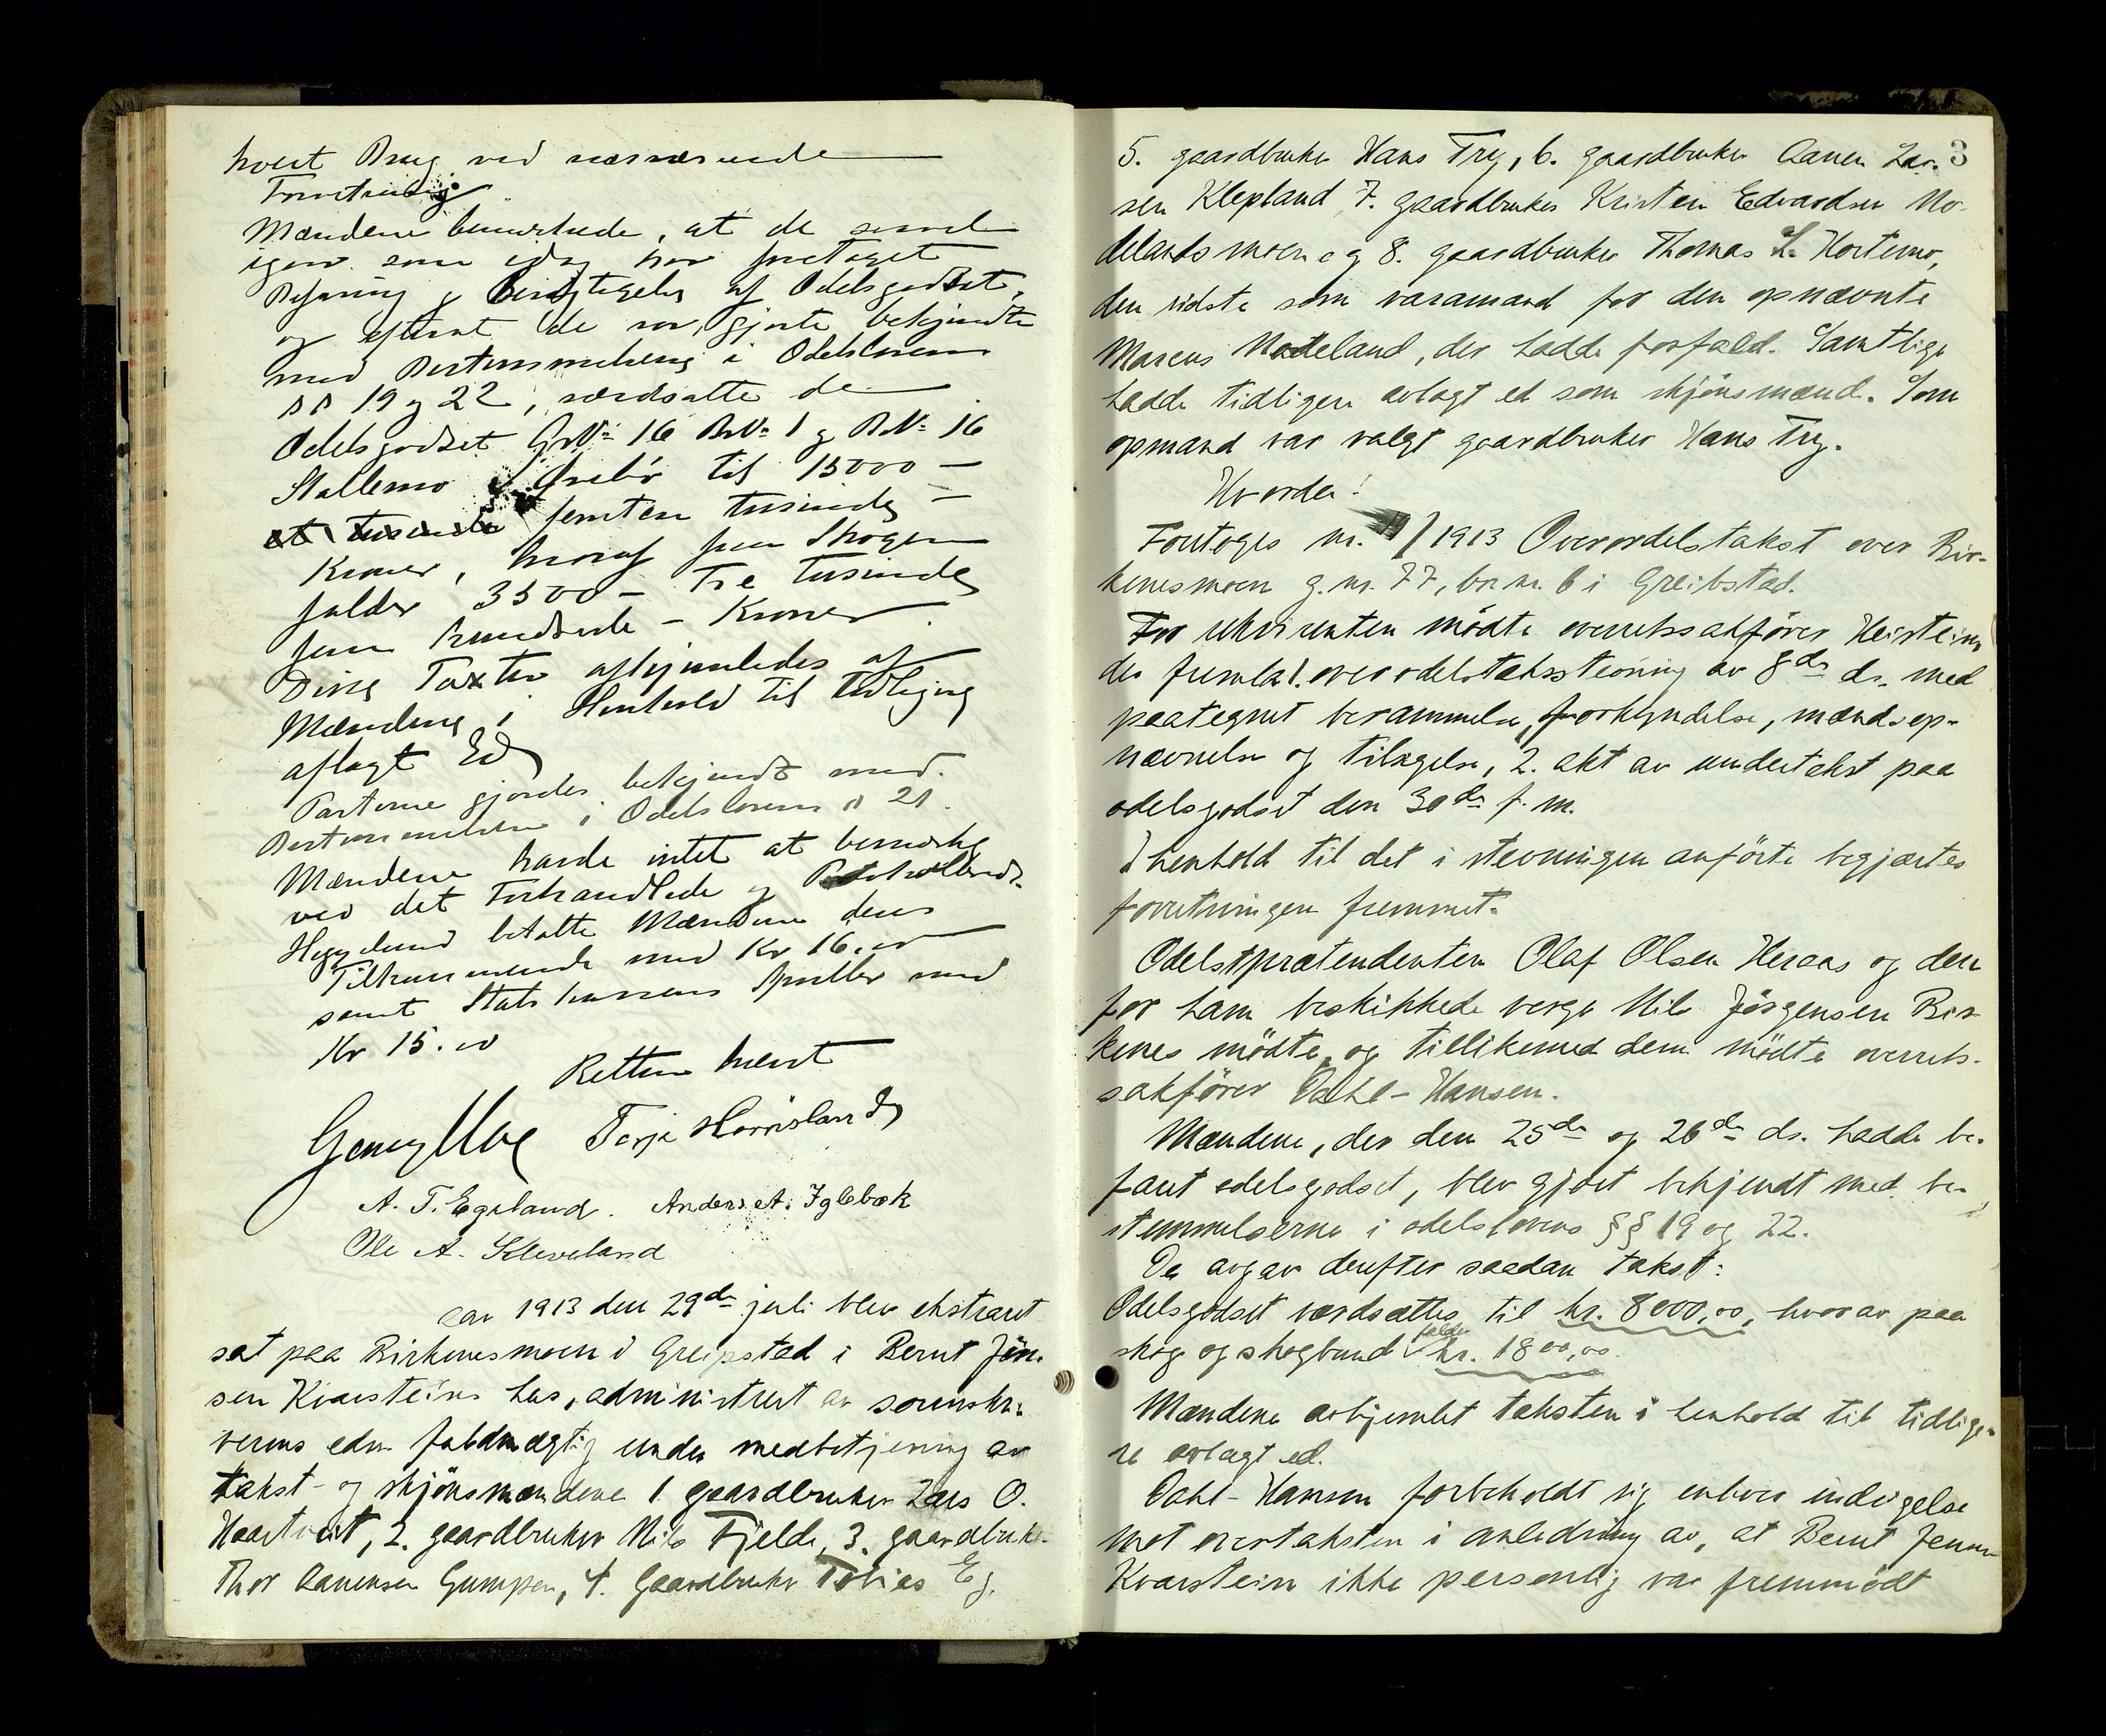 hvert Brug ved nærværende
Forretning
Mændene bemærkede, at de saavel
igaar som idag har foretaget
Befaring & Besigtigelse af Odelsgodset,
og efterat de var gjorte bekjendte
med Bestemmelserne i Odelslovens
§§ 19 og 22, værdsatte de
Odelsgodset GrN: 16 BrN: 1 og BrN: 16
Stallemo i Øvrebø til 15000 –
femten tusinde –
Kroner, hvoraf paa Skogen
falder 3500 – Tre tusinde
fem hundrede – Kroner.
Disse Taxter afhjemledes af
Mændene i Henhold til tidligere
aflagt Ed
Parterne gjordes bekjendt med
Bestemmelsen i Odelslovens § 21.
Mændene havde intet at bemærke
ved det Forhandlede og
betalte Mændene deres
Tilkommende med Kr 16.00
samt Statskassens Sportler med
Kr 15.00
Retten hævet
Terje Hørrisland
A. T. Egeland. Anders A. Iglebæk
Ole A. Kleveland
Aar 1913 den 29de juli blev ekstraret
sat paa Birkenesmoen i Greipstad i Bernt Jen-
sen Kvarsteins hus, administrert av sorenskri-
verens edsv. fuldmægtig under medbetjening av
takst- og skjönsmændene 1. gaardbruker Lars O.
Haartveit, 2. gaardbruker Nils Fjelde, 3. gaardbruker
Thor Aanensen Gumpen, 4. Gaardbruker Tobias Eg,
3
5. gaardbruker Hans Try, 6. gaardbruker Aanen Lar-
sen Klepland 7. gaardbruker Kristen Edvardsen No-
delandsmoen og 8. gaardbruker Thomas L. Hortemo,
den sidste som varamand for den opnævnte
Marcus Nodeland, der hadde forfald. Samtlige
hadde tidligere avlagt ed som skjönsmænd. Som
opmand var valgt gaardbruker Hans Try.
Hvorda!
Foretoges nr. /1913 Overodelstakst over Bir-
kenesmoen g.nr. 77, br.nr. 6 i Greibstad.
For rekvirenten mödte overretssakförer Heistein,
der fremla 1. overodelstakststevning av 8de ds. med
paategnet berammelse, forkyndelse, mændsop-
nævnelse og tilsigelse, 2. akt av undertakst paa
odelsgodset den 30de f. m.
I henhold til det i stevningen anförte begjærtes
forretningen fremmet.
Odelsprætendenten Olaf Olsen Heraas og den
for ham beskikkede verge Nils Jörgensen Bir-
kenes mödte, og tillikemed dem mödte overrets-
sakförer Dahl-Hansen.
Mændene, der den 25de og 26de ds. hadde be-
faret odelsgodset, blev gjort bekjendt med be-
stemmelserne i odelslovens §§ 19 og 22.
De avgav derefter saadan takst:
Odelsgodset værdsættes til kr. 8000,00, hvorav paa
skog og skogbund falder kr. 1800,00.
Mændene avhjemlet taksten i henhold til tidlige-
re avlagt ed.
Dahl-Hansen forbeholdt sig enhver indsigelse
mot overtaksten i anledning av, at Bernt Jensen
Kvarstein ikke personlig var fremmödt